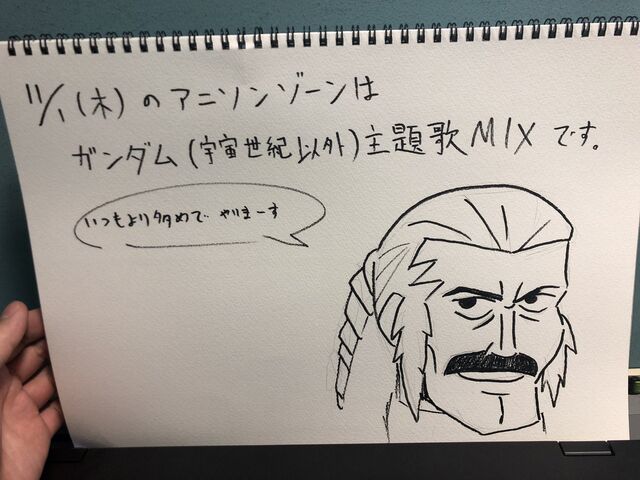 11/1(木)のアニソンゾーンは
ガンダム(宇宙世紀以外)主題歌MIXです。
いつもより多めで やりまーす